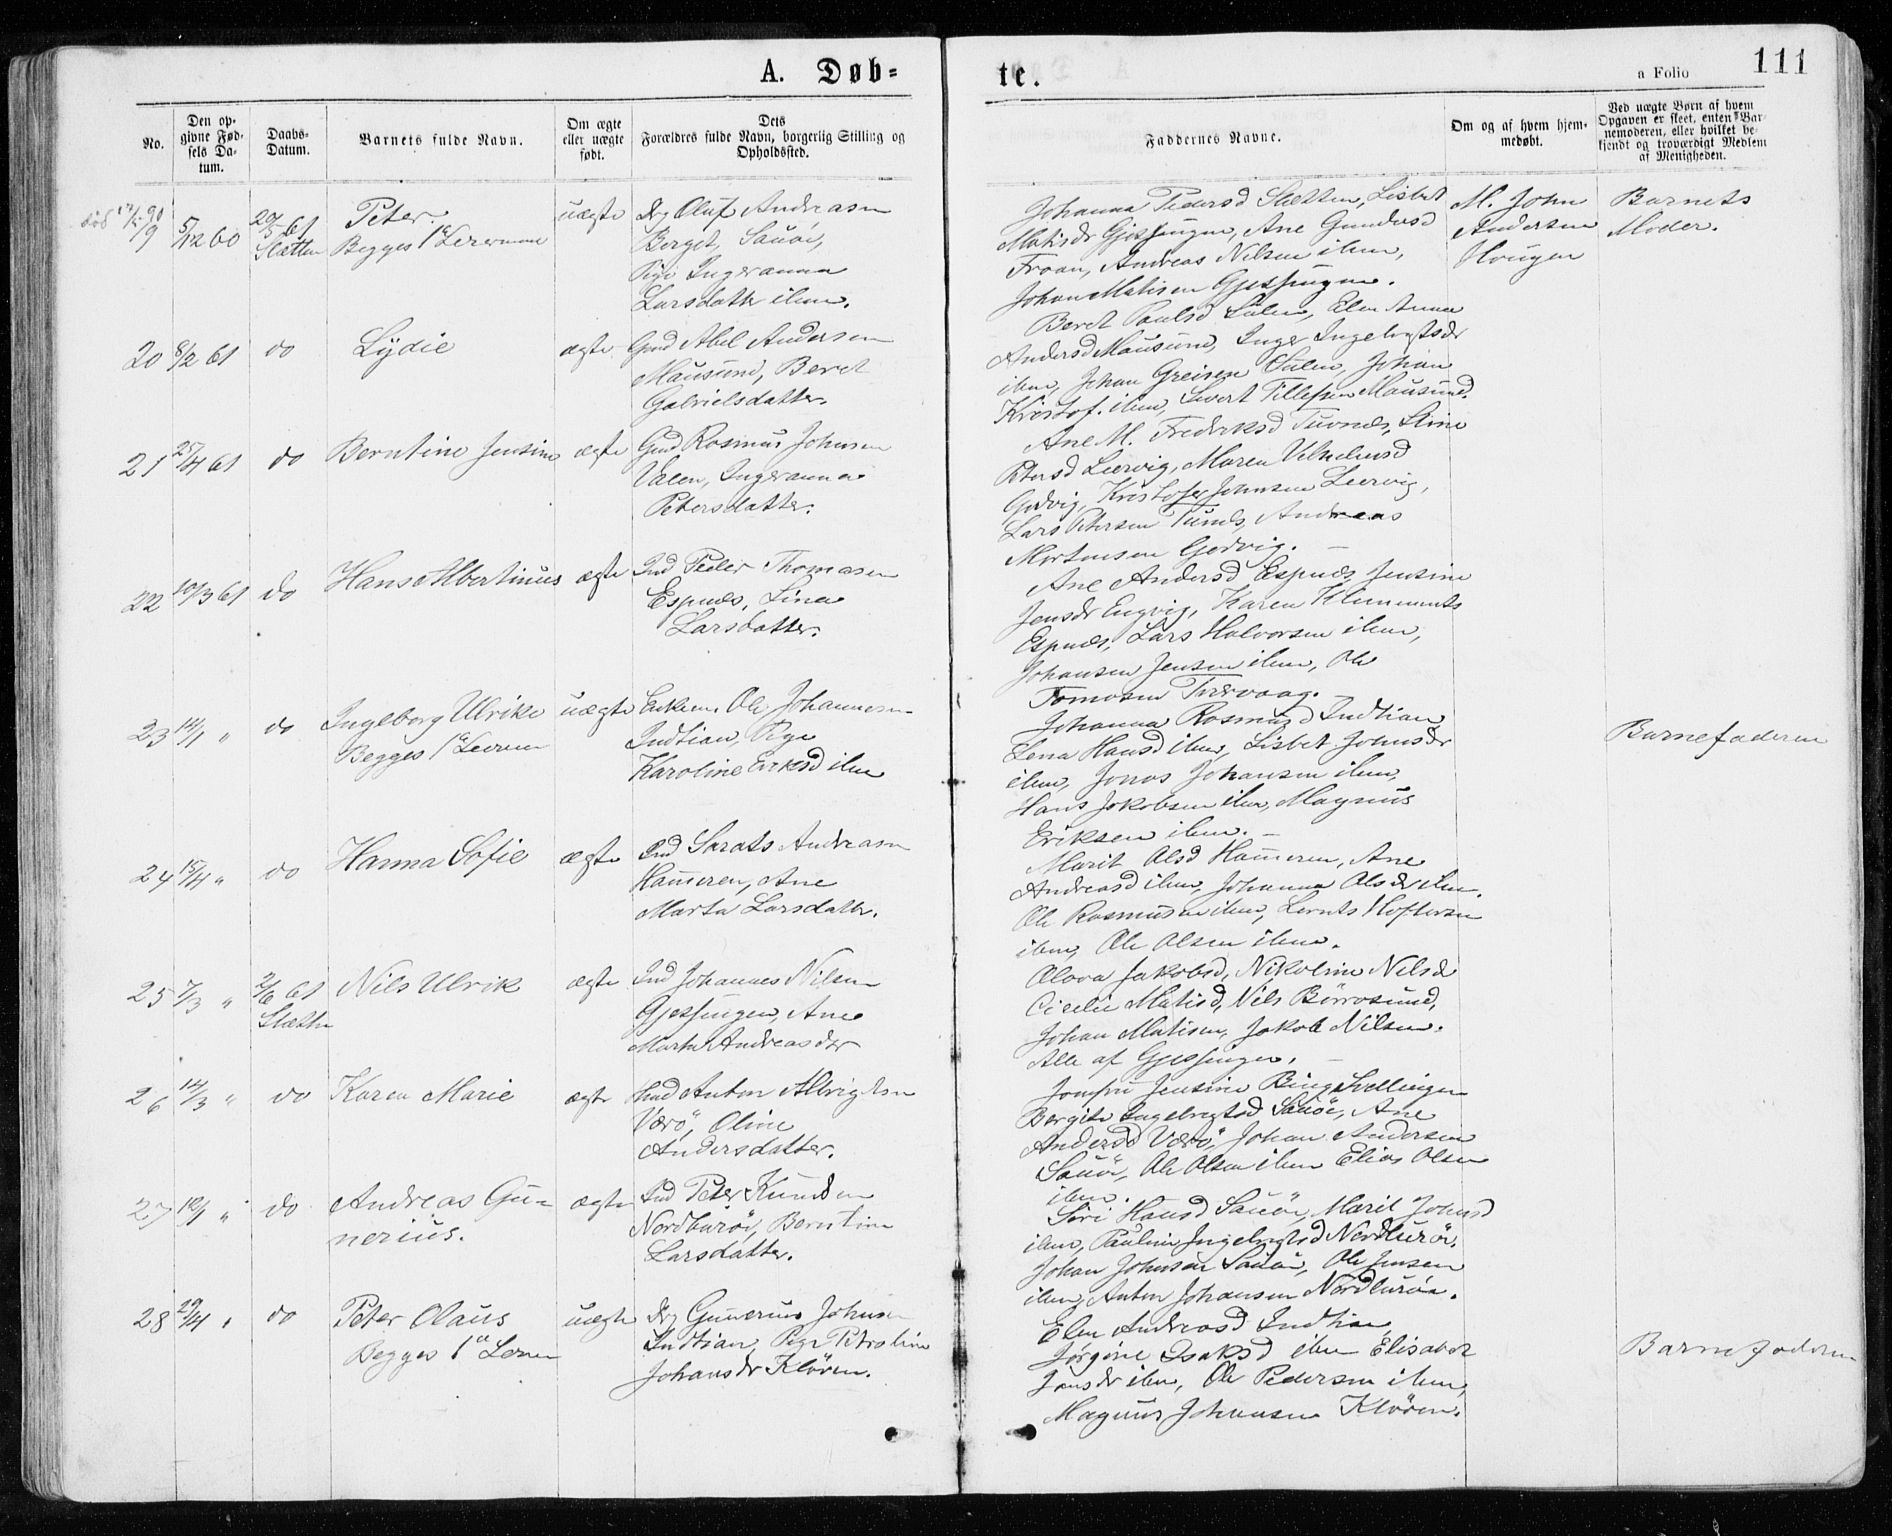 A. Døb-
te.
a Folio
111
No.
Den op-
givne Fød-
sels Da-
tum.
Daabs-
Datum.
Barnets fulde Navn.
Om ægte
eller uægte
født.
Dets
Forældres fulde Navn, borgerlig Stilling og
Opholdssted.
Faddernes Navne.
Om og af hvem hjem-
medøbt.
Ved uægte Børn af hvem
Opgaven er skeet, enten Bar-
nemoderen, eller hvilket be-
kjendt og troværdigt Medlem
af Menigheden.
død
5/12 60
20/5 61
Slætten
Peter.
Begges 1ste Leiermaal
uægte
Oluf Andreasen
Berget, Sauöi,
Pige Ingeranna
Larsdatter ibm.
Johanna Pedersd Sletten, Lisbet
Matisdr Gjessingen, Ane Gundersd
Froan, Andreas Nilsen ibm,
Johan Matisen Gjessingen.
M. John
Andersen
Hougen
Barnets
Moder.
20
8/2 61
do
Lydie
ægte
Gmd Abel Andersen
Mausund, Beret
Gabrielsdatter.
Beret Paulsd Sulen, Elen Anna
Andersd Mausund, Inger Ingebrigtsdr
ibm, Johan Greisen Sulen, Johan
Kristof. ibm, Sivert Tillefsen Mausund.
21
25/4 61
do
Berntine Jensine
ægte
Gmd Rasmus Johnsen
Valen, Ingeranna
Petersdatter.
Ane M. Frederiksd Tuvnæs, Stine
Petersd Leervig, Maren Vilhelmsd
Gjedvig, Kristofer Johnsen Leervig,
Lars Petersen Tuvnæs, Andreas
Mortensen Gjedvig.
22
10/3 61
do
Hans Albertinus
ægte
Ind Peder Thomasen
Espnæs, Lina
Larsdatter.
Ane Andersd Espnæs, Jensine
Jensdr Engvig, Karen Klemmets
Espnæs, Lars Halvorsen ibm,
Johansen Jensen ibm, Ole
Tomasen
23
14/1 "
do
Ingeborg Ulrike
Begges 1ste Leierm
uægte
Enkem. Ole Johannesen
Indtian, Pige
Karoline Eriksd ibm
Johanna Rasmusd Indtian
Lena Hansd ibm, Lisbet Johnsdr
ibm, Jonas Johansen ibm,
Hans Jakobsen ibm, Magnus
Eriksen ibm.
Barnefaderen
24
15/4 "
do
Hanna Sofie
ægte
Ind Sarats Andreasen
Hammeren, Ane
Marta Larsdatter.
Marit Olsd Hammeren, Ane
Andreasd ibm, Johanna Olsdr ibm.
Ole Rasmussen ibm, Lernts
ibm, Ole Olsen ibm.
25
7/3 "
2/6 61
Slætten
Nils Ulrik
ægte
Ind Johannes Nilsen
Gjessingen, Ane
Marta Andreasdtr
Olava Jakobsd, Nikoline Nilsd
Matisd, Nils Börrosund,
Johan Matisen, Jakob Nilsen.
Alle af Gjessingen.
26
14/3 "
do
Karen Marie
ægte
Ind Anton Albrigtsen
Værö, Oline
Andersdatter.
Jomfru Jensine Bing Svellingen
Bergite Ingebrigtsd Sauöi, Ane
Andersd Værö, Johan Andersen
Sauöi, Ole Olsen ibm Elias Olsen
ibm.
27
12/1 "
do
Andreas Gu-
nerius.
ægte
Ind Peter Knudsen
Nordburöi, Berntine
Larsdatter.
Siri Hansd Sauöi, Marit Johnsd
ibm, Pauline Ingebrigtsd Nordburöi.
Johan Johnsen Sauöi, Ole Jensen
ibm, Anton Johansen Nordburöi.
28
29/4 "
do
Peter Olaus
Begges 1ste Leierm
uægte
Gunerius Johnsen
Indtian, Pige Petroline
Johansdr Klören.
Elen Andreasd Indtian
Jørgine Isaksd ibm Elisabet
Jansdr ibm, Ole Pedersen ibm,
Magnus Johansen Klören.
Barnefaderen